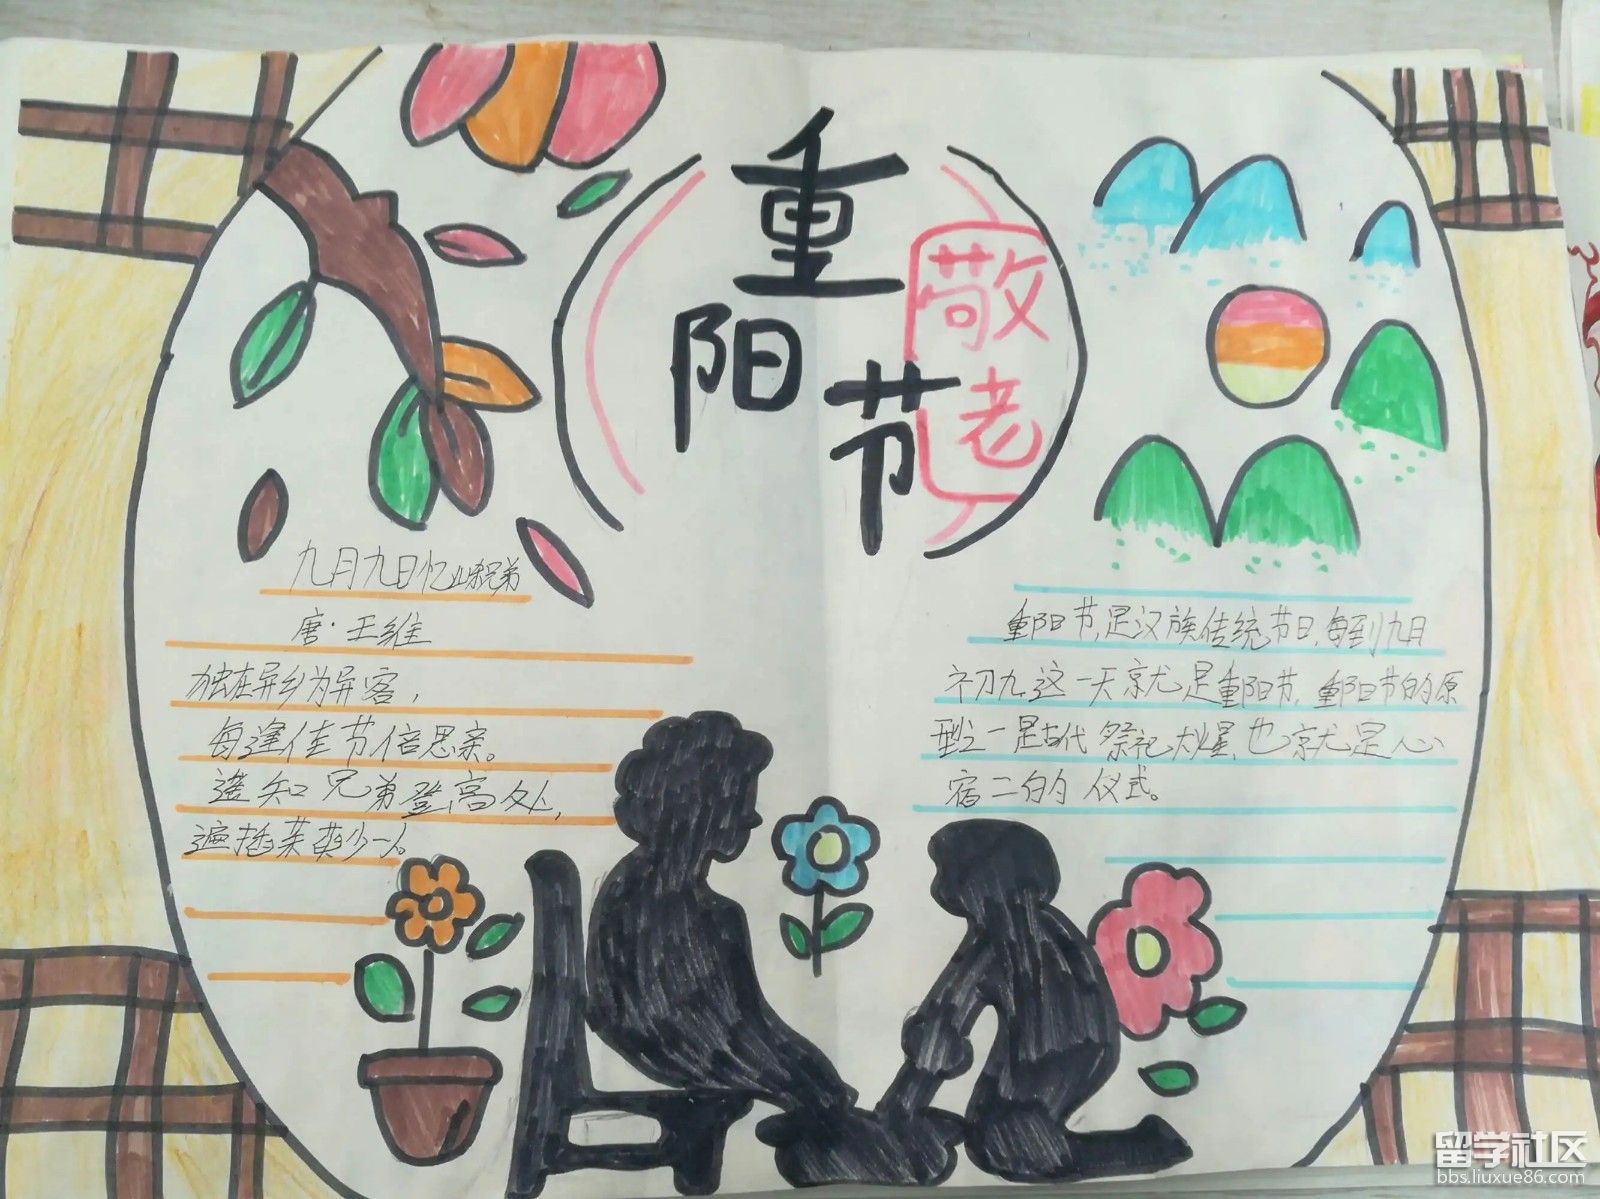 重
阳
节
敬
老
九月九日忆山东兄弟
唐·王维
独在异乡为异客，
每逢佳节倍思亲。
遥知兄弟登高处，
遍插茱萸少一人。
重阳节，是汉族传统节日，每到九月
初九，这一天就是重阳节，重阳节的原
型之一是古代祭祀大火星，也就是心
宿二的仪式。
留学社区
bbs.liuxue86.com